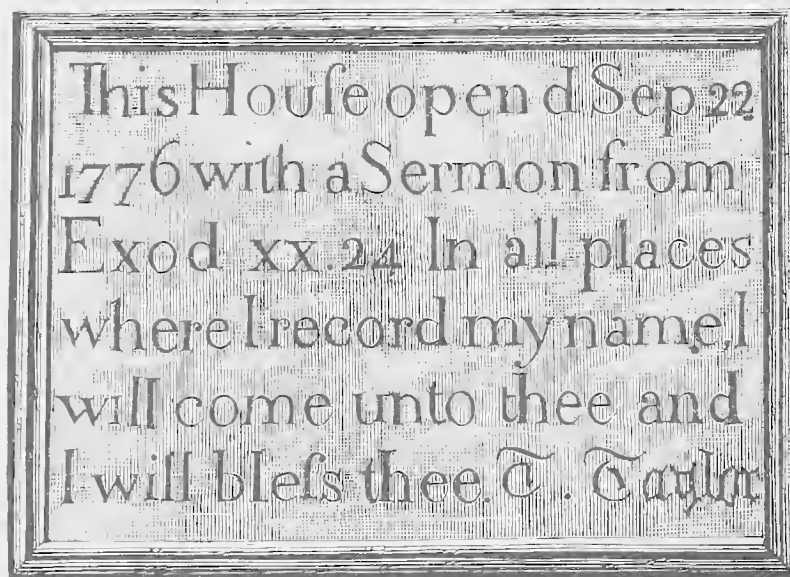 This Houſe open d Sep 22
1776 with a Sermon from
Exod xx.24 In all places
where I record my name, I
will come unto thee and
I will bleſs thee. T. Taylor